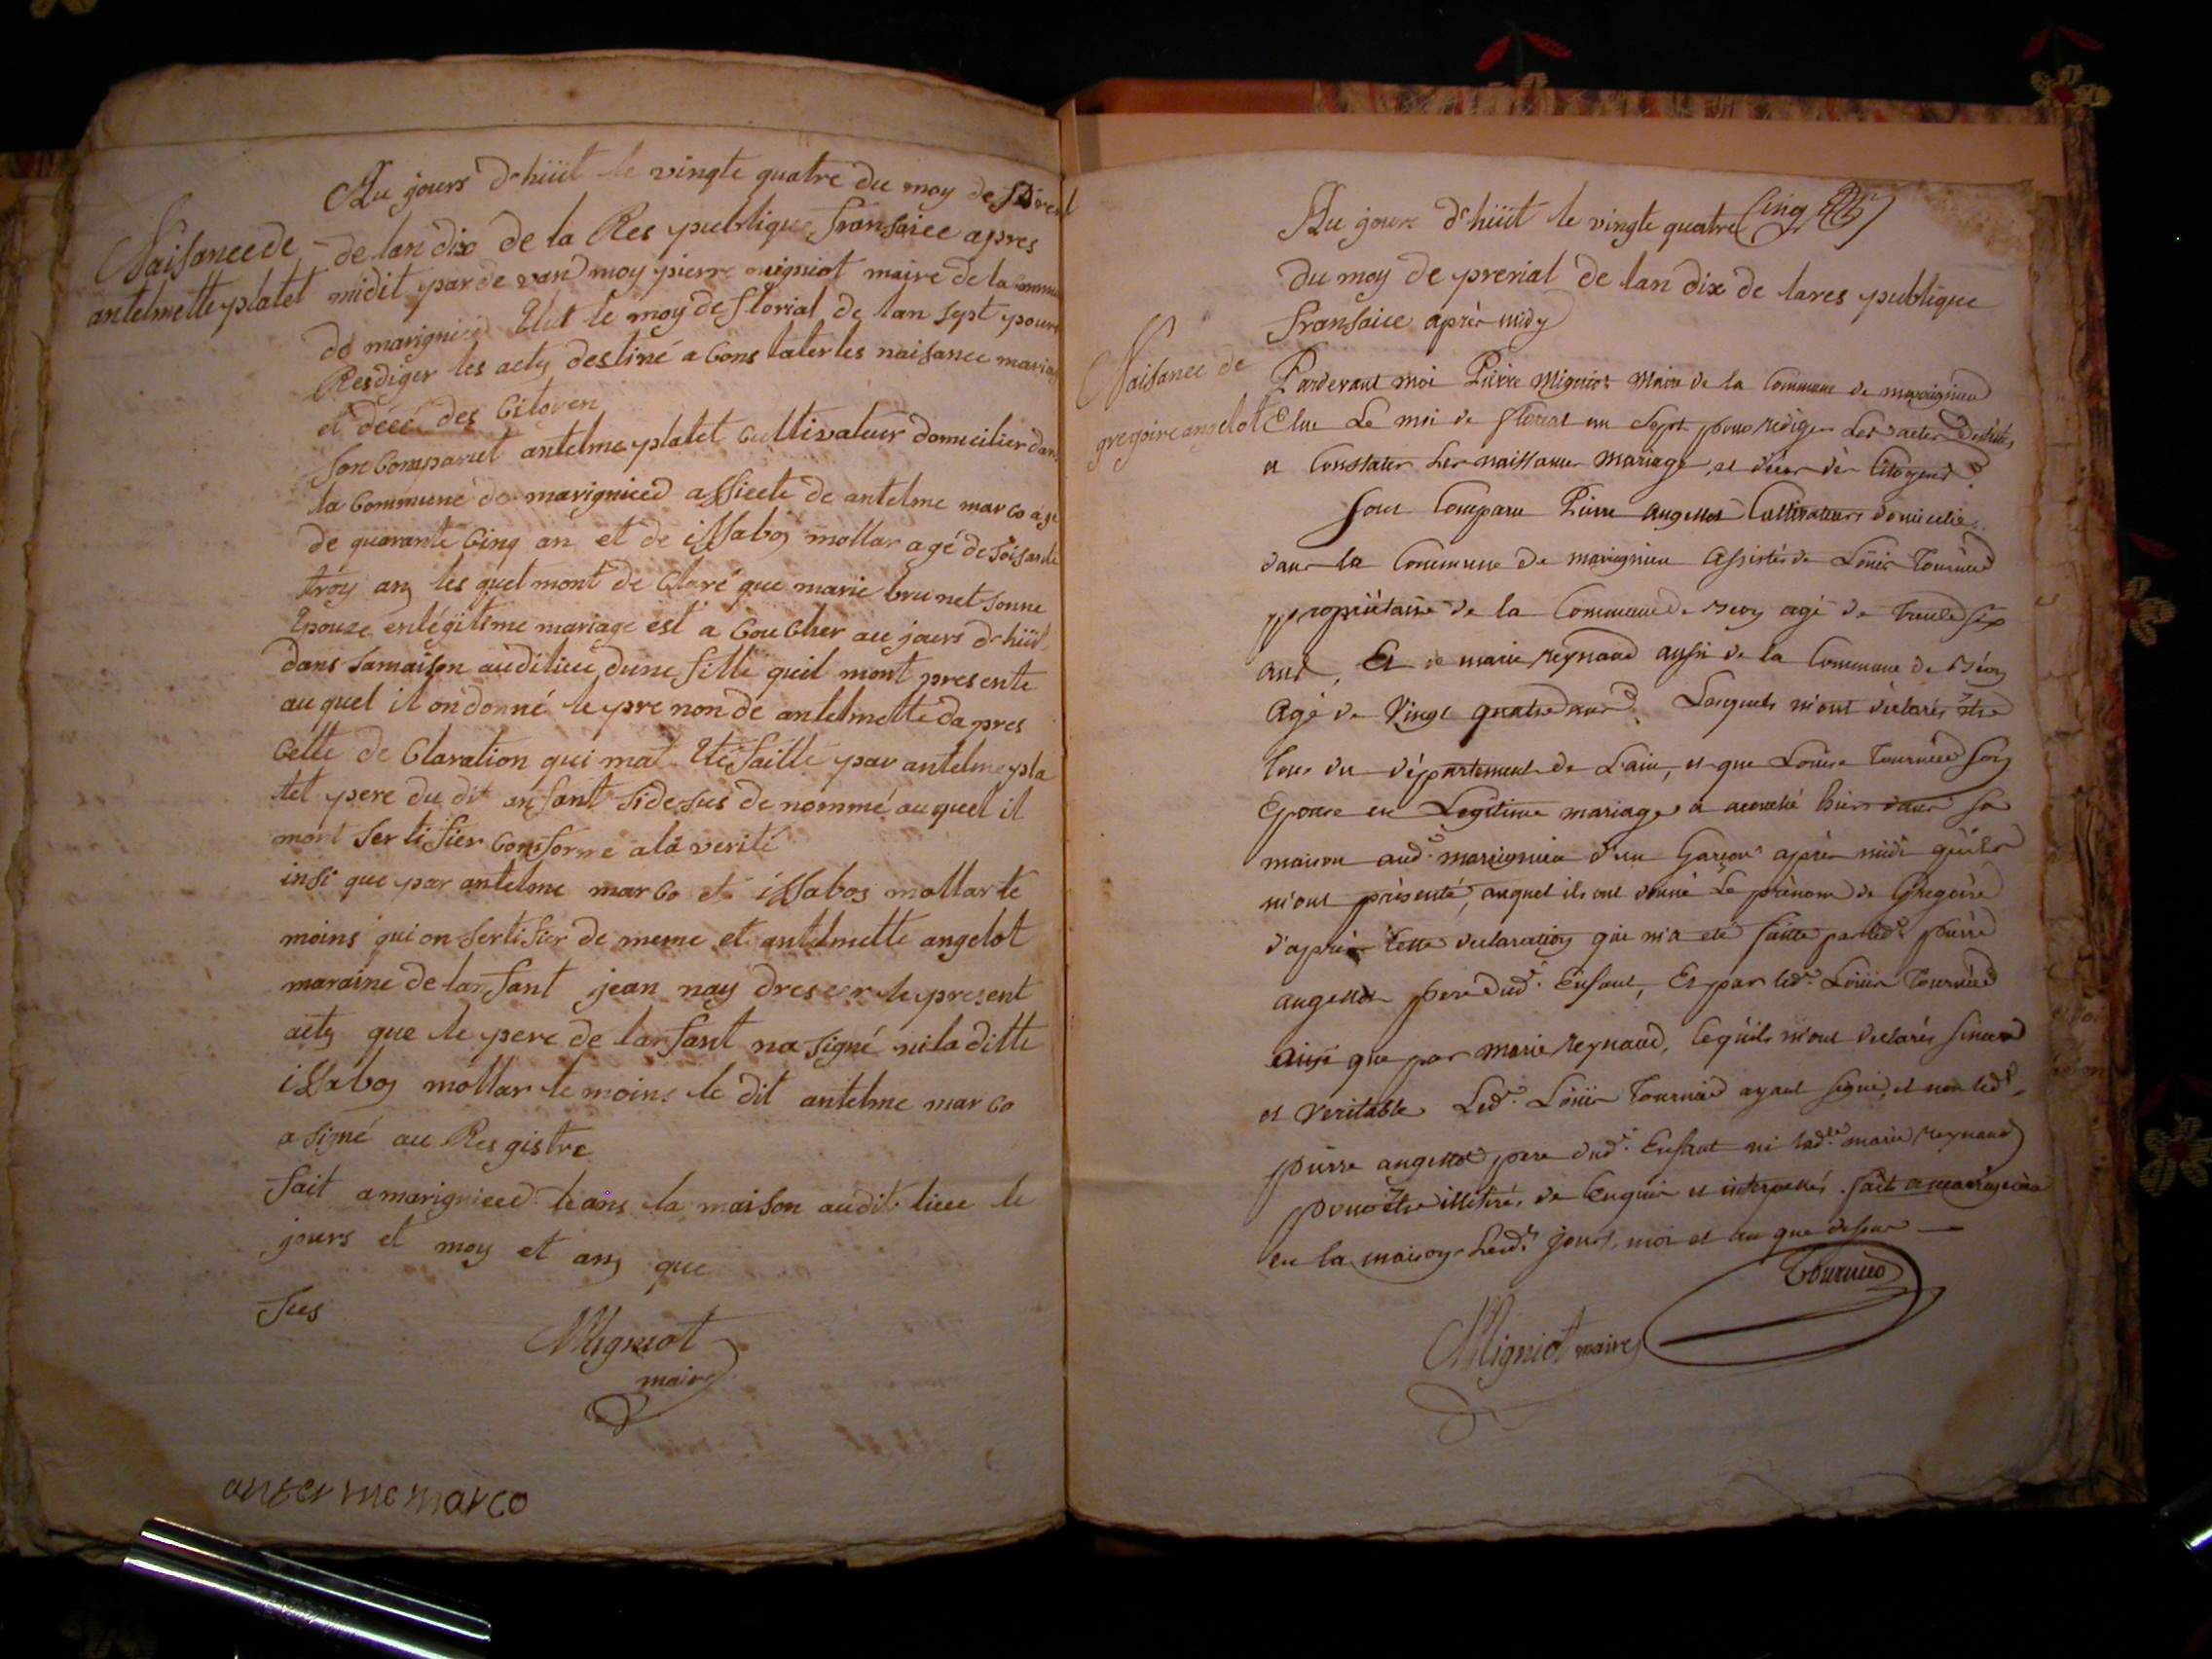 Au jours dhüit le vingte quatre du moy de
Naisance de
antelmette platet
de lan dix de la Res publique fransaice apres
midit par de vand moy pierre migniot maire de la
de marignieud Elut le moy de florial de lan sept pour
Resdiger les acty destiné a Cons tater les naisance
et décé des Citoyen
son Comparut antelme platet Cultivateur domicilier
la Commune de marignieud assiecte de antelme marco
de quarante Cinq an et de issaboy mollar agé de soisante
troy any les quel mont de Claré que marie brunet sonne
Epouze en légitime mariage est a Coucher au jours dhüit
dans sa maison audit lieu dune fille queil mont presente
au quel il on donné le pre non de antelmette da pres
Cette de Claration qui mat Eté faitte par antelme pla
tet pere du dit anfant si desus de nommé au quel il
mont sertifier Conforme a la verité
insi que par antelme marco et issaboy mollar te
moins qui on sertifier de meme et antelmette angelot
maraine de lanfant jean nay dreser le present
acty que le pere de lanfant na signé ni la ditte
issaboy mollar temoins le dit antelme marco
a siné au Resgistre
fait a marignieud dans la maison audit lieu le
jours et moy et any que
sus
Migniot
maire
antermemarco
Au jours dhüit le vingte quatre Cinq
du moy de prerial de lan dix de la res publique
fransaice après midy
Naisance de
gregoire angelot
Pardevant moi Pierre Migniot Maire de la Commune de marignieu
Elue Le moi de floreal an Sept pour rédiger Les actes destinés
a Constater les naissance mariage, et décès des Citoyens
Sont Comparu Pierre angellot Cultivateur domicilié
dans la Commune de marignieu assistés de Loüis Tournied
propriétaire de la Commune de Béon agé de trente six
ans, Et de marie reynaud aussi de la Commune de Béon
agé de Vingt quatre ans. Lesquels m'ont déclarés Etre
tous du département de L'ain, et que Louise Tournied son
Epouse en Legitime mariage a accouché hier dans sa
maison aud. marignieu d'un Garçon après midi qu'ils
m'ont présenté, auquel ils ont donné Le prénom de Gregoire
d'après Cette declaration que m'a eté faitte par led. pierre
angellot pere dud. Enfant, Et par led. Loüis Tournied
ainsi que par marie reynaud, lequels m'ont declarés sincere
et veritable Led. Loüis Tournied ayant signé, et non led.
pierre angellot pere dud. Enfant ni lad. marie reynaud
pour Etre illitéré, de Enquis et interpellés. fait a marignieu
en la maison Lesd. jours, moi et an que dessus
Tournied
Migniot maire